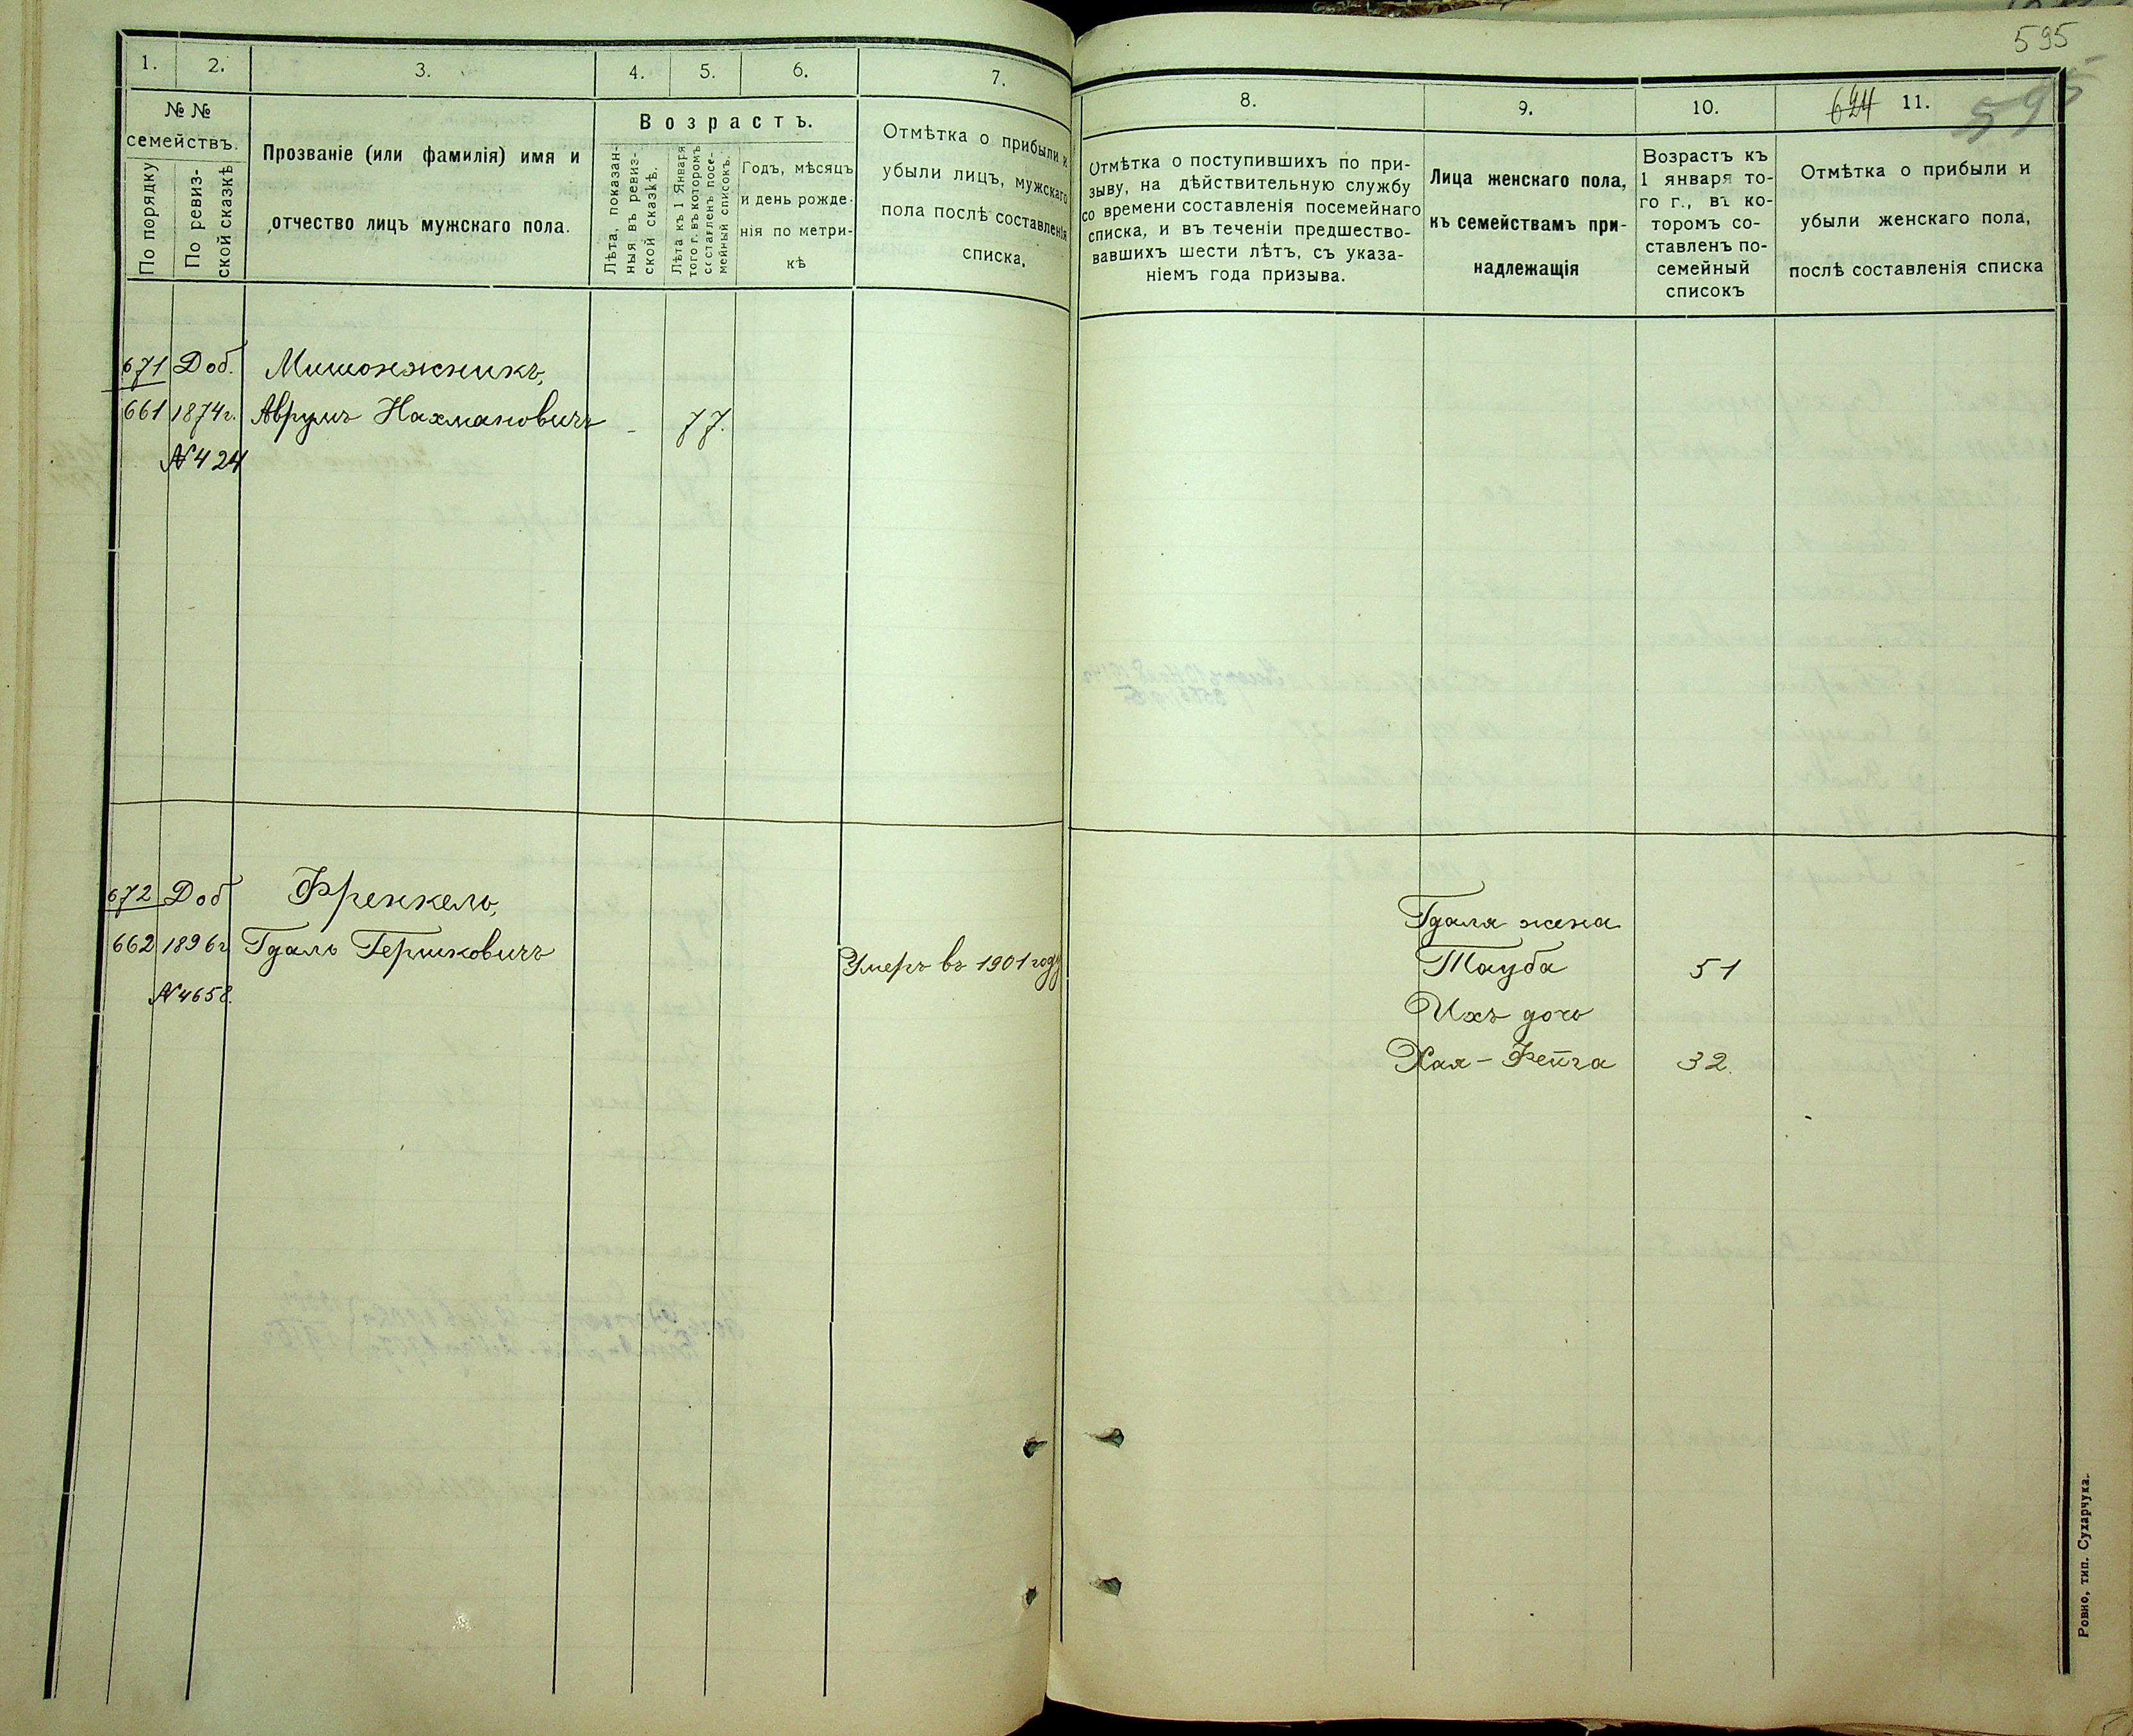 595
1.
2.
3.
4.
5.
6.
7.
№ №
семействъ.
По порядку
По ревиз-
ской сказкѣ
Прозваніе (или фамилія) имя и
отчество лицъ мужскаго пола.
Возрастъ.
Лѣта, показан-
ныя въ ревиз-
ской сказкѣ.
Лѣта къ 1 Января
того г. въ которомъ
составленъ посе-
мейный списокъ.
Годъ, мѣсяцъ
и день рожде-
нія по метри-
кѣ
Отмѣтка о прибыли и
убыли лицъ, мужскаго
пола послѣ составленія
списка.
671 Доб. Мишонжникъ,
661 1874г. Аврумъ Нахмановичъ - 77.
№ 424
672 Доб Френкель,
662 1896г Гдаль Гершковичъ Умеръ въ 1901 году
№ 4658.
8.
9.
10.
624 11.
595
Отмѣтка о поступившихъ по при-
зыву, на дѣйствительную службу
со времени составленія посемейнаго
списка, и въ теченіи предшество-
вавшихъ шести лѣтъ, съ указа-
ніемъ года призыва.
Лица женскаго пола,
къ семействамъ при-
надлежащія
Возрастъ къ
1 января то-
го г., въ ко-
торомъ со-
ставленъ по-
семейный
списокъ
Отмѣтка о прибыли и
убыли женскаго пола,
послѣ составленія списка
Гдаля жена
Тауба 51
Ихъ дочь
Хая-Фейга 32.
Ровно, тип. Сухарчука.